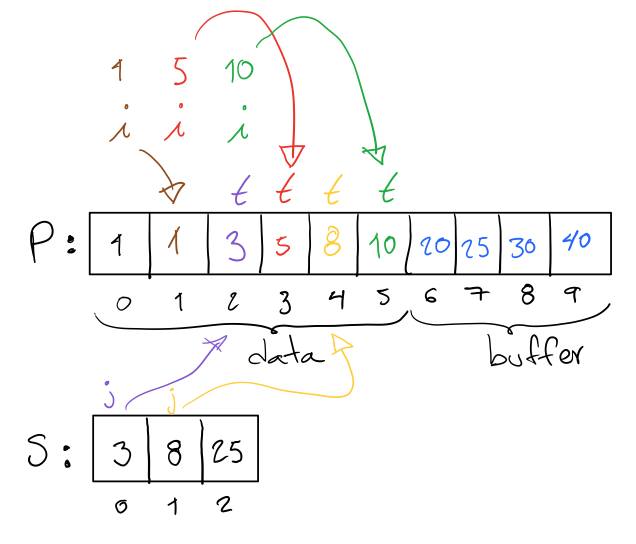 1 5 10
i i i
t t t t
P: 1 1 3 5 8 10 20 25 30 40
0 1 2 3 4 5 6 7 8 9
data buffer
j j
S: 3 8 25
0 1 2